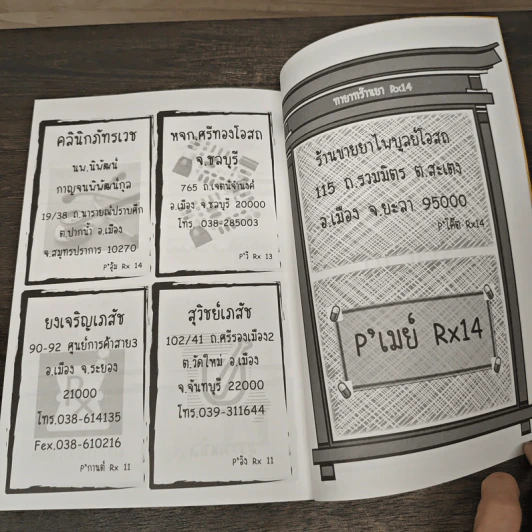 คลินิกภัทรเวช
นพ.นิพัฒน์
กาญจนพพัฒน์กูล
19/38 ถ.นารายณ์ปราบศึก
ต.ปากน้ำ อ.เมือง
จ.สมุทรปราการ 10270
P'อุ้ม Rx 14
หจก.ศรีทองโอสถ
จ.ชลบุรี
765 ถ.เจตน์จำนงค์
อ.เมือง จ.ชลบุรี 20000
โทร. 038-285003
P'วิ Rx 13
ยงเจริญเภสัช
90-92 ศูนย์การค้าสาย3
อ.เมือง จ.ระยอง
21000
โทร.038-614135
Fex.038-610216
P'กานต์ Rx 11
สุวิชย์เภสัช
102/41 ถ.ศรีรองเมือง2
ต.วัดใหม่ อ.เมือง
จ.จันทบุรี 22000
โทร.039-311644
P'อิง Rx 11
ทายาทร้านยา Rx14
ร้านขายยาไพบูลย์โอสถ
115 ถ.รวมมิตร ต.สะเตง
อ.เมือง จ.ยะลา 95000
P'โค้ก Rx14
P'เมย์ Rx14